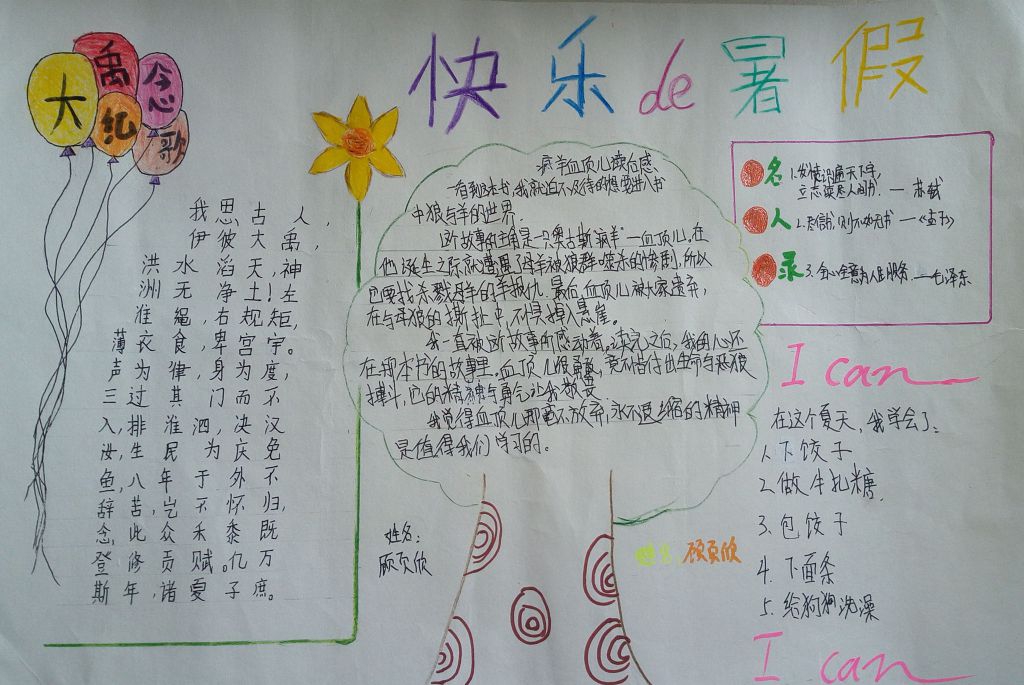 快乐de暑假
大禹纪念歌
我思古人，
伊彼大禹，
洪水滔天，神
洲无净土！左
准绳，右规矩，
薄衣食，卑宫宇。
声为律，身为度，
三过其门而不
入，排淮泗，决汉
汝，生民为庆免
鱼，八年于外不
辞苦，岂不怀归，
念此众禾黍既
登修贡赋。亿万
斯年，诸夏子庶。
疯羊血顶儿读后感
一看到这本书，我就迫不及待的想要进入书
中狼与羊的世界。
这个故事的主角是一只奥古斯疯羊—血顶儿。在
他诞生之际就遭遇了母羊被狼群噬杀的惨剧，所以
它要找杀戮母羊的羊报仇。最后，血顶儿被大家遗弃，
在与耳狼的撕扯中，不惧掉入悬崖。
我一直被这个故事所感动着，读完之后，我的心还
在那本书的故事里，血顶儿很勇敢，竟不惜付出生命与恶狼
搏斗，它的精神与勇气让我敬畏
我觉得血顶儿那毫不放弃，永不退缩的精神
是值得我们学习的。
姓名：
顾页欣
姓名：顾页欣
名人录
1.发愤识遍天下字，
立志读尽人间书。—苏轼
2.尽信书，则不如无书—《孟子》
3.全心全意为人民服务。—毛泽东
I can
在这个夏天，我学会了：
1.下饺子
2.做牛扎糖
3.包饺子
4.下面条
5.给狗狗洗澡
I can